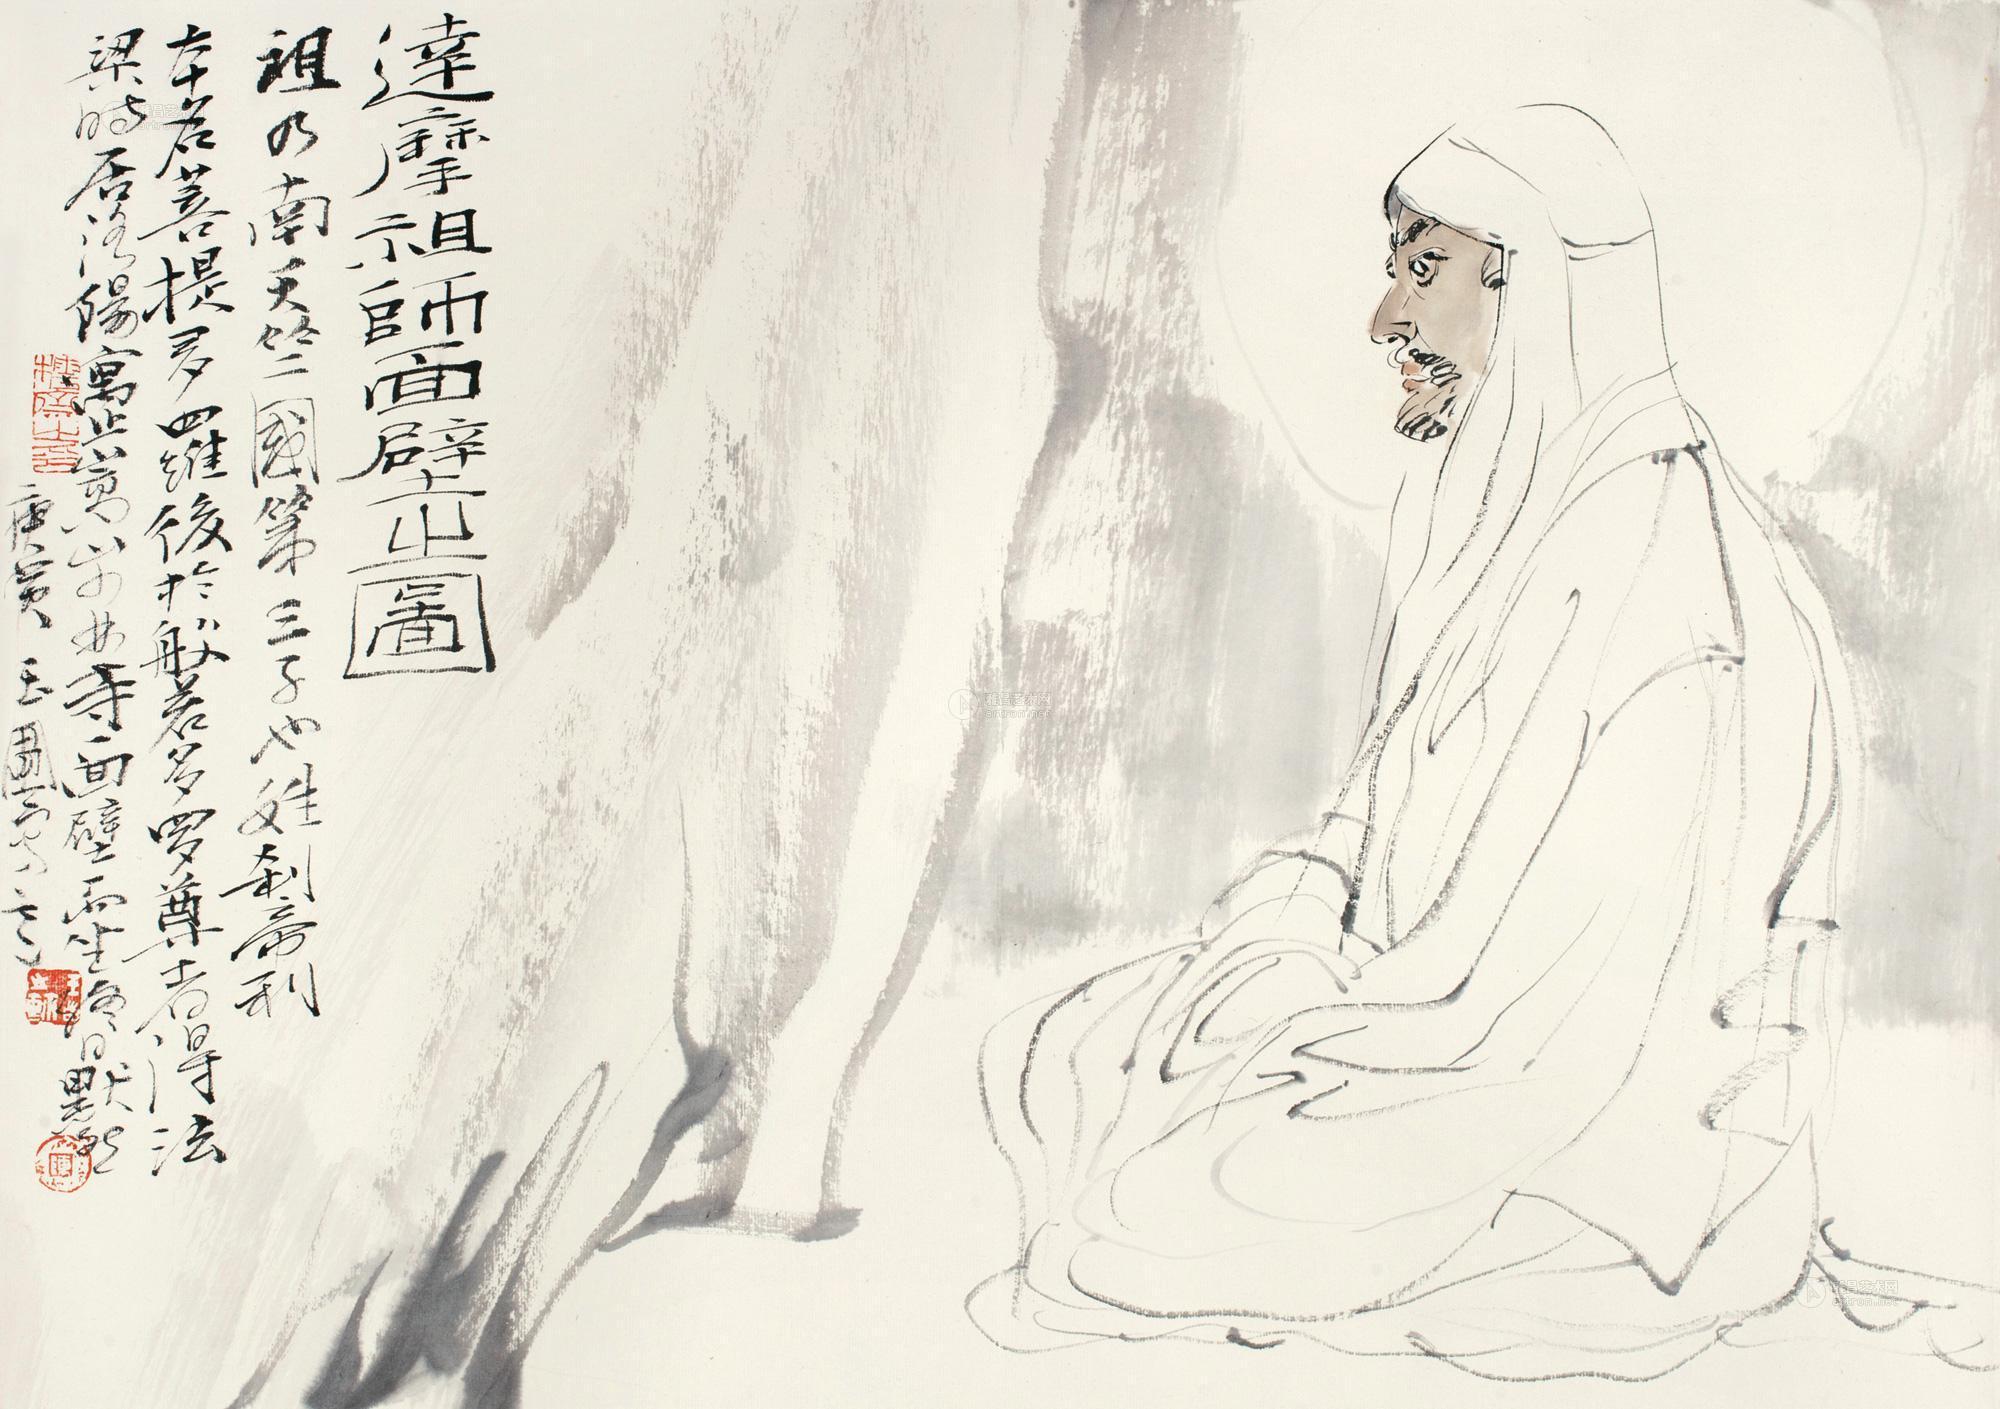 達摩祖師面壁之圖
祖乃南天竺國第三子也姓刹帝利
本名菩提多羅後於般若多罗尊者得法
梁時居洛陽寓止嵩山少林寺面壁而坐終日默然
庚寅 王